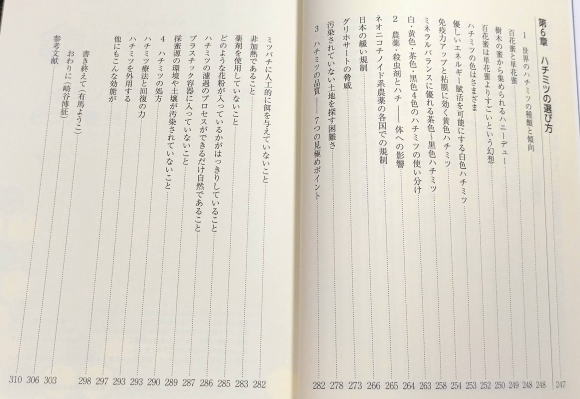 第6章 ハチミツの選び方 247
1 世界のハチミツの種類と傾向 248
百花蜜と単花蜜 248
樹木の蜜から集められるハニーデュー 249
百花蜜は単花蜜よりすごいという幻想 250
ハチミツの色はさまざま 252
優しいエネルギー賦活を可能にする白色ハチミツ 253
免疫力アップと粘膜に効く黄色ハチミツ 254
ミネラルバランスに優れる茶色〜黒色ハチミツ 258
白・黄色・茶色・黒色4色のハチミツの使い分け 263
2 農薬・殺虫剤とハチ――体への影響 264
ネオニコチノイド系農薬の各国での規制 265
日本の緩い規制 266
グリホサートの脅威 273
汚染されていない土地を探す困難さ 278
3 ハチミツの品質――7つの見極めポイント 282
ミツバチに人工的に餌を与えていないこと 282
非加熱であること 283
薬剤を使用していないこと 285
どのような花粉が入っているかがはっきりしていること 285
ハチミツの濾過のプロセスができるだけ自然であること 286
プラスチック容器に入っていないこと 287
採蜜源の環境や土壌が汚染されていないこと 289
4 ハチミツの処方 290
ハチミツ療法と回復の力 293
ハチミツを外用する 293
他にもこんな効能が 297
書き終えて(有馬ようこ) 298
おわりに(崎谷博征) 303
参考文献 306
310